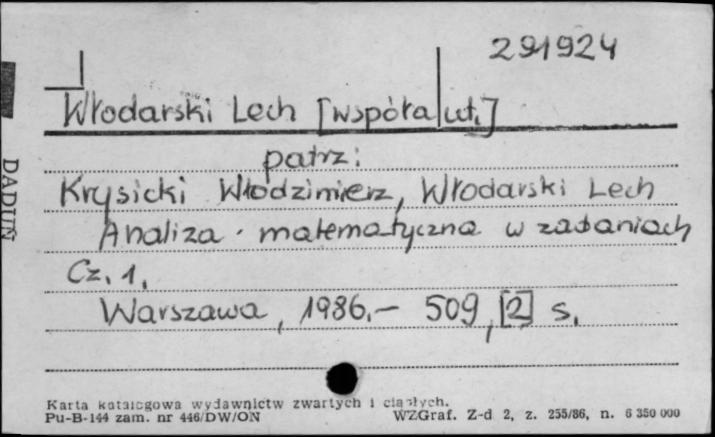 291924
Włodarski Lech [współaut.]
patrz:
Krysicki Włodzimierz, Włodarski Lech
Analiza matematyczna w zadaniach
Cz. 1.
Warszawa, 1986.- 509, [2] s.
DADUŃ
Karta katalogowa wydawnictw zwartych i ciągłych.
Pu-B-144 zam. nr 446/DW/ON WZGraf. Z-d 2, z. 255/86, n. 6 350 000